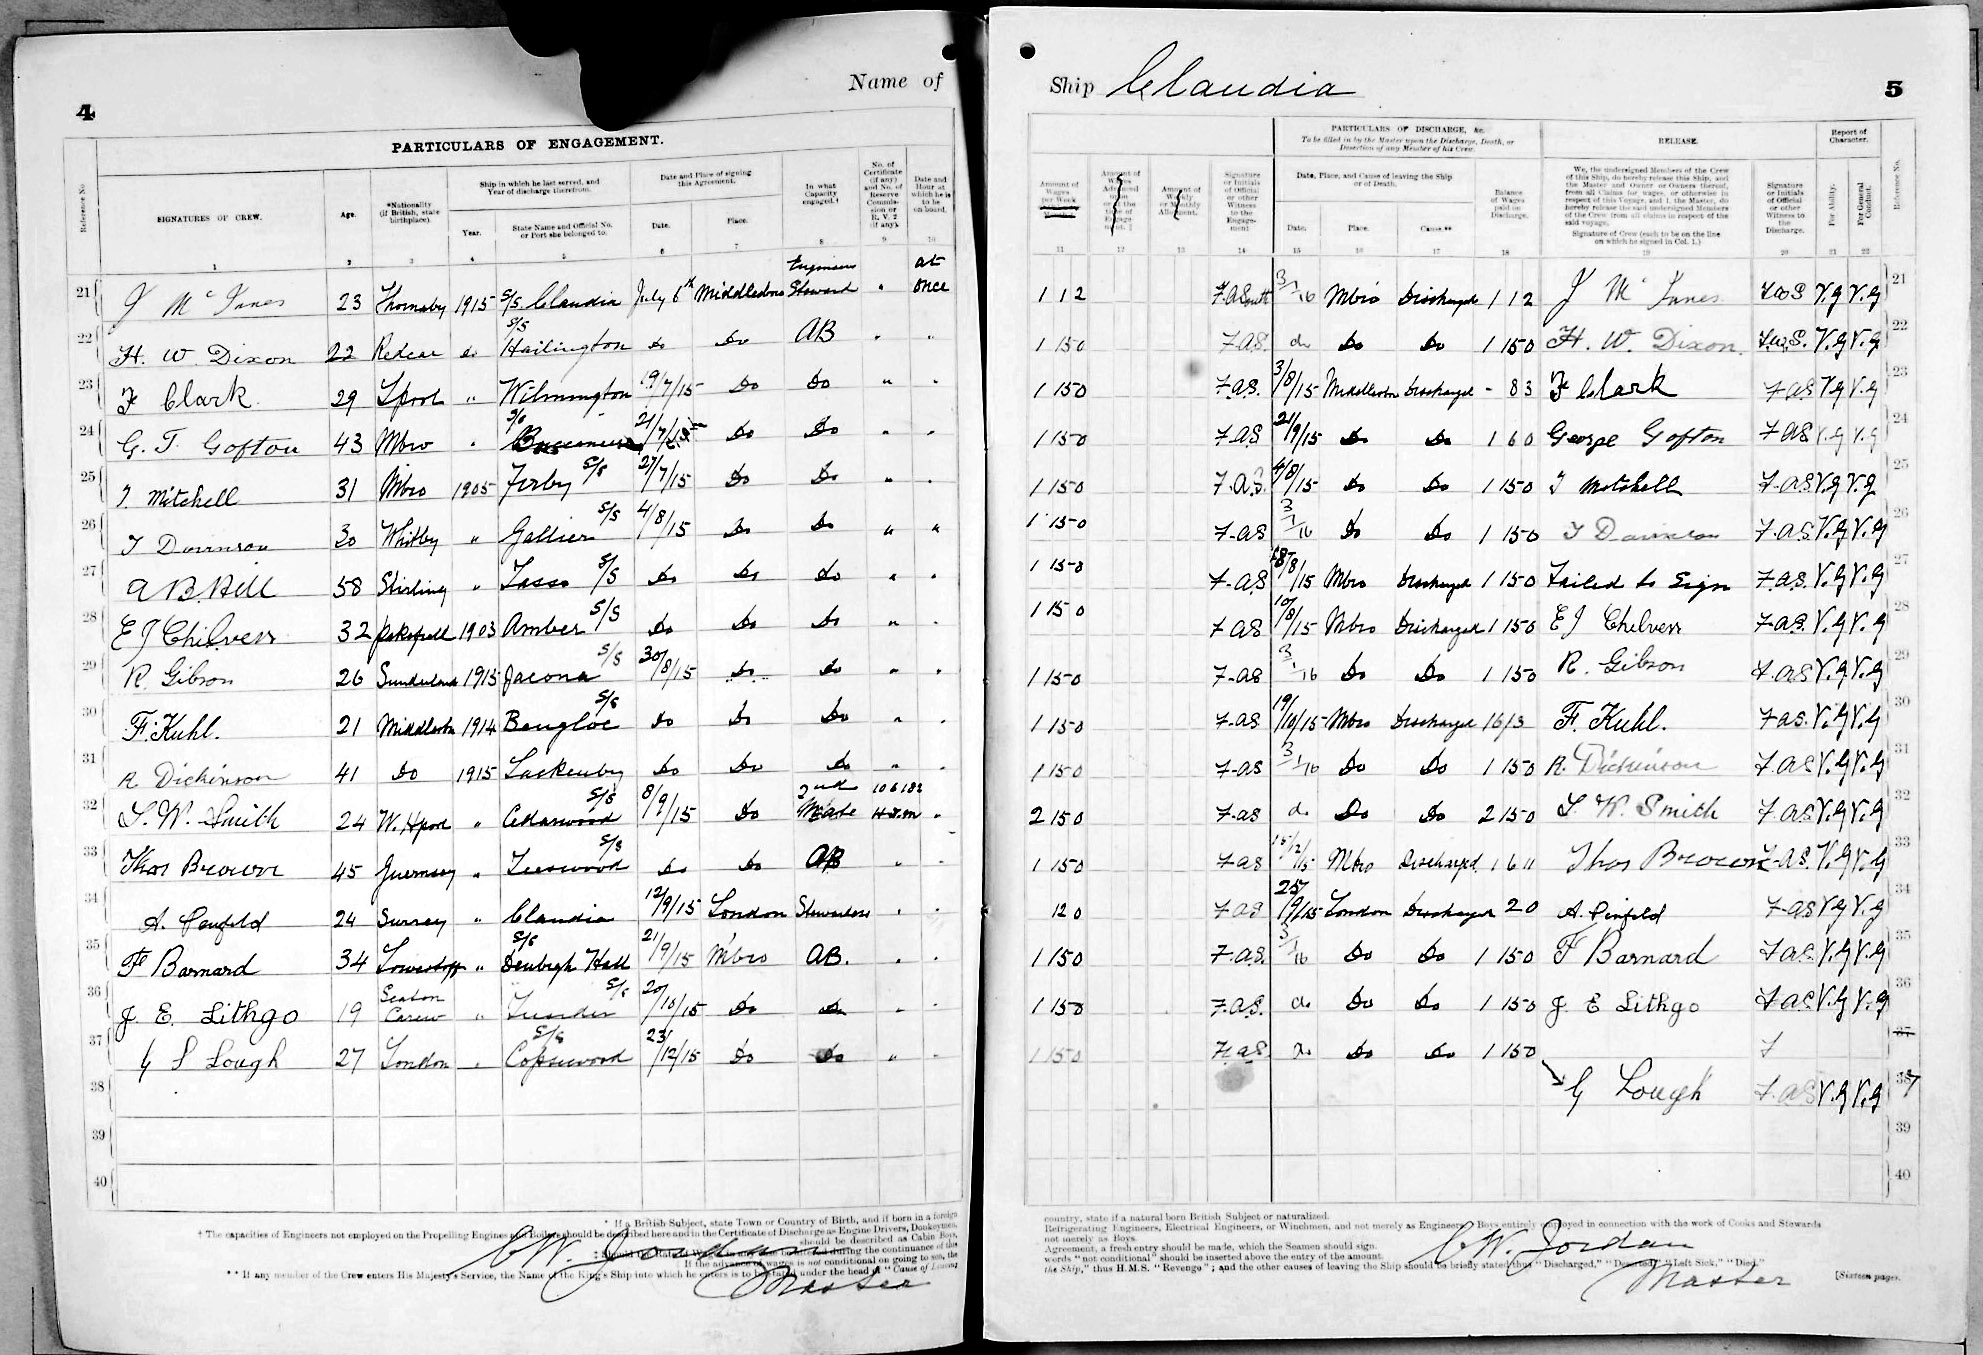 4
Name of
PARTICULARS OF ENGAGEMENT.
Reference No.
SIGNATURES OF CREW.
Age.
*Nationality (if British, state birthplace).
Ship in which he last served, and Year of discharge therefrom.
Year.
State Name and Official No. or Port she belonged to.
Date and Place of signing this Agreement.
Date.
Place.
In what Capacity engaged.†
No. of Certificate (if any) and No. of Reserve Commission or R. V. 2 (if any).
Date and Hour at which he is to be on board.
1 2 3 4 5 6 7 8 9 10
21 J McInnes 23 Thornaby 1915 S/S Claudia July 6th Middlesbro Engineers Steward " at once
22 H. W. Dixon 22 Redcar do S/S Hailington do Do AB " "
23 F Clark 29 Lpool " Wilmington 19/7/15 Do Do " "
24 G. T. Gofton 43 Mbro " S/S 21/7/15 Do Do " "
25 T. Mitchell 31 Mbro 1905 Firby S/S 27/7/15 Do Do " "
26 30 Whitby " Gallier S/S 4/8/15 Do Do " "
27 A B. Hill 58 Stirling " Tasso S/S Do Do Do " "
28 E J Chilvers 32 1903 Amber S/S Do Do Do " "
29 R. Gibson 26 Sunderland 1915 Jacona S/S 30/8/15 Do Do " "
30 F. Kuhl. 21 Middlesbro 1914 Bengloe S/S Do Do Do " "
31 R Dickinson 41 Do 1915 Lackenby Do Do Do " "
32 S. W. Smith 24 W. Hpool " Cedarwood S/S 8/9/15 Do 2nd Mate "
33 Thos Brown 45 Guernsey " Teeswood S/S Do Do AB " "
34 A. Penfold 24 Surrey " Claudia 12/9/15 London Stewardess " "
35 F Barnard 34 Lowestoft " S/S Denbigh Hall 21/9/15 M'bro AB. " "
36 J. E. Lithgo 19 Seaton Carew " S/S 20/10/15 Do Do " "
37 G S Lough 27 London " S/S Copsewood 23/12/15 Do Do " "
38
39
40
* If a British Subject, state Town or Country of Birth, and if born in a foreign
† The capacities of Engineers not employed on the Propelling Engines and Boilers should be described here and in the Certificate of Discharge as Engine Drivers, Donkeymen,
should be described as Cabin Boys,
during the continuance of this
If the advance of wages is not conditional on going to sea, the
** If any member of the Crew enters His Majesty's Service, the Name of the King's Ship into which he enters is to be stated under the head of "Cause of Leaving
C W. Jordan
Master
Ship Claudia
5
Amount of Wages per Week
Amount of Wages Advanced upon or at the time of Engagement.
Amount of Weekly or Monthly Allotment.
Signature or Initials of Official or other Witness to the Engagement
PARTICULARS OF DISCHARGE, &c.
To be filled in by the Master upon the Discharge, Death, or Desertion of any Member of his Crew.
Date, Place, and Cause of leaving the Ship or of Death.
Date.
Place.
Cause.**
Balance of Wages paid on Discharge.
RELEASE.
We, the undersigned Members of the Crew of this Ship, do hereby release this Ship, and the Master and Owner or Owners thereof, from all Claims for wages, or otherwise in respect of this Voyage, and I, the Master, do hereby release the said undersigned Members of the Crew from all claims in respect of the said voyage.
Signature of Crew (each to be on the line on which he signed in Col. 1.)
Signature or Initials of Official or other Witness to the Discharge.
Report of Character.
For Ability.
For General Conduct.
Reference No.
11 12 13 14 15 16 17 18 19 20 21 22
1 12 F. A Smith 3/1/16 Mbro Discharged 1 12 J McInnes F.W.S V.G V.G 21
1 150 F.A.S. do Do Do 1 150 H. W. Dixon. F.W.S. V.G V.G 22
1 150 F.A.S. 3/8/15 Middlesbro Discharged - 83 F Clark F.A.S V.G V.G 23
1 150 F.A.S 21/9/15 Do Do 1 60 George Gofton F.A.S V.G V.G 24
1 150 F.A.S. 4/8/15 Do Do 1 150 T Mitchell F.A.S V.G V.G 25
1 150 F.A.S 3/1/16 Do Do 1 150 F.A.S V.G V.G 26
1 150 F.A.S /8/15 Mbro Discharged 1 150 Failed to Sign F.A.S. V.G V.G 27
1 150 F.A.S 10/8/15 Mbro Discharged 1 150 E J Chilvers F.A.S. V.G V.G 28
1 150 F.A.S 3/1/16 Do Do 1 150 R. Gibson F.A.S V.G V.G 29
1 150 F.A.S 19/10/15 Mbro Discharged 1613 F. Kuhl. F.A.S. V.G V.G 30
1 150 F.A.S 3/1/16 Do Do 1 150 R. Dickinson F.A.S V.G V.G 31
2 150 F.A.S do Do Do 2 150 S. W. Smith F.A.S. V.G V.G 32
1 150 F.A.S 15/12/15 Mbro Discharged 1 6 11 Thos Brown F.A.S. V.G V.G 33
120 F.A.S 25/9/15 London Discharged 20 A. Penfold F.A.S V.G V.G 34
1 150 F.A.S. 3/1/16 Do Do 1 150 F Barnard F.A.S. V.G V.G 35
1 150 F.A.S. do Do Do 1 150 J E Lithgo F.A.S V.G V.G 36
1 150 F.A.S Do Do Do 1 150 F 37
G Lough F.A.S V.G V.G 38 7
39
40
country, state if a natural born British Subject or naturalized.
Refrigerating Engineers, Electrical Engineers, or Winchmen, and not merely as Engineers. Boys entirely employed in connection with the work of Cooks and Stewards
not merely as Boys.
Agreement, a fresh entry should be made, which the Seamen should sign.
words "not conditional" should be inserted above the entry of the amount.
the Ship," thus H.M.S. "Revenge"; and the other causes of leaving the Ship should be briefly stated thus "Discharged," "Deserted," "Left Sick," "Died."
C W. Jordan
Master
[Sixteen pages.